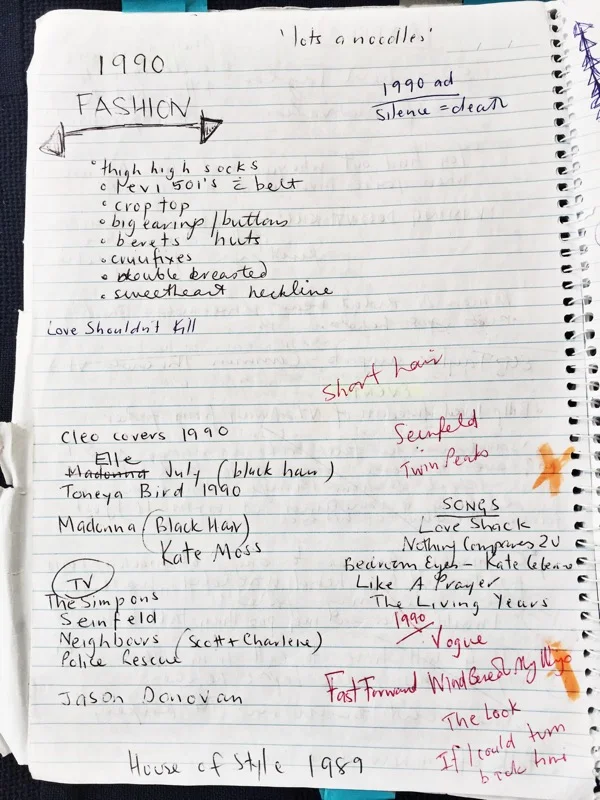 'lots a noodles'
1990
FASHION
1990 ad
silence = death
thigh high socks
Levi 501's c̄ belt
crop top
big earings / buttons
berets hats
crucifixes
double breasted
sweetheart neckline
Love Shouldn't Kill
Short hair
Cleo covers 1990
Seinfeld
Elle
Madonna July (black hair)
Twin Peaks
Toneya Bird 1990
SONGS
Madonna (Black Hair)
Love Shack
Kate Moss
Nothing Compares 2U
Bedroom Eyes - Kate Ceberano
TV
Like A Prayer
The Simpons
The Living Years
Seinfeld
1990
Neighbours (Scott + Charlene)
Vogue
Police Rescue
Fast Forward Wind Beneath My Wings
Jason Donovan
The Look
If I could turn
back time
House of Style 1989